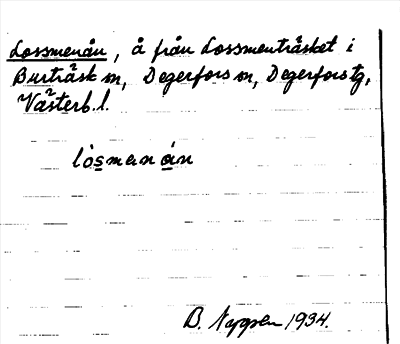 Lossmenån, å från Lossmenträsket i
Burträsk sn, Degerfors sn, Degerfors tg,
Västerb. l.
lòsmanán
B. 1934.